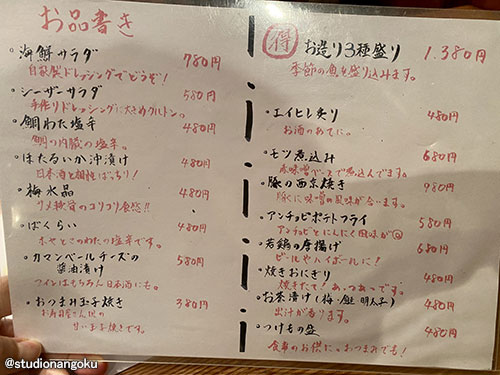 お品書き
・海鮮サラダ 780円
自家製ドレッシングでどうぞ!
・シーザーサラダ 580円
手作りドレッシングに大きめクルトン。
・鯛わた塩辛 480円
鯛の内臓の塩辛。
・ほたるいか沖漬け 480円
日本酒と相性ばっちり!
・梅水晶 480円
サメ軟骨のコリコリ食感!!
・ばくらい 480円
ホヤとこのわたの塩辛です。
・カマンベールチーズの
醤油漬け 580円
ワインはもちろん日本酒にも。
・おつまみ玉子焼き 380円
お寿司屋さん風の
甘い玉子焼きです。
得 お造り3種盛り 1.380円
季節の魚を盛り込みます。
・エイヒレ炙り 480円
お酒のあてに。
・モツ煮込み 680円
赤味噌ベースで煮込んでます。
・豚の西京焼き 980円
豚に味噌の風味が合います。
・アンチョビポテトフライ 580円
アンチョビとにんにく風味が◎
・若鶏の唐揚げ 680円
ビールやハイボールに!
・焼きおにぎり 480円
焼きたて!あっつあつです。
・お茶漬け(梅・鮭・明太子) 480円
出汁が香ります。
・つけもの盛 480円
食事のお供に。おつまみでも!
@studionangoku